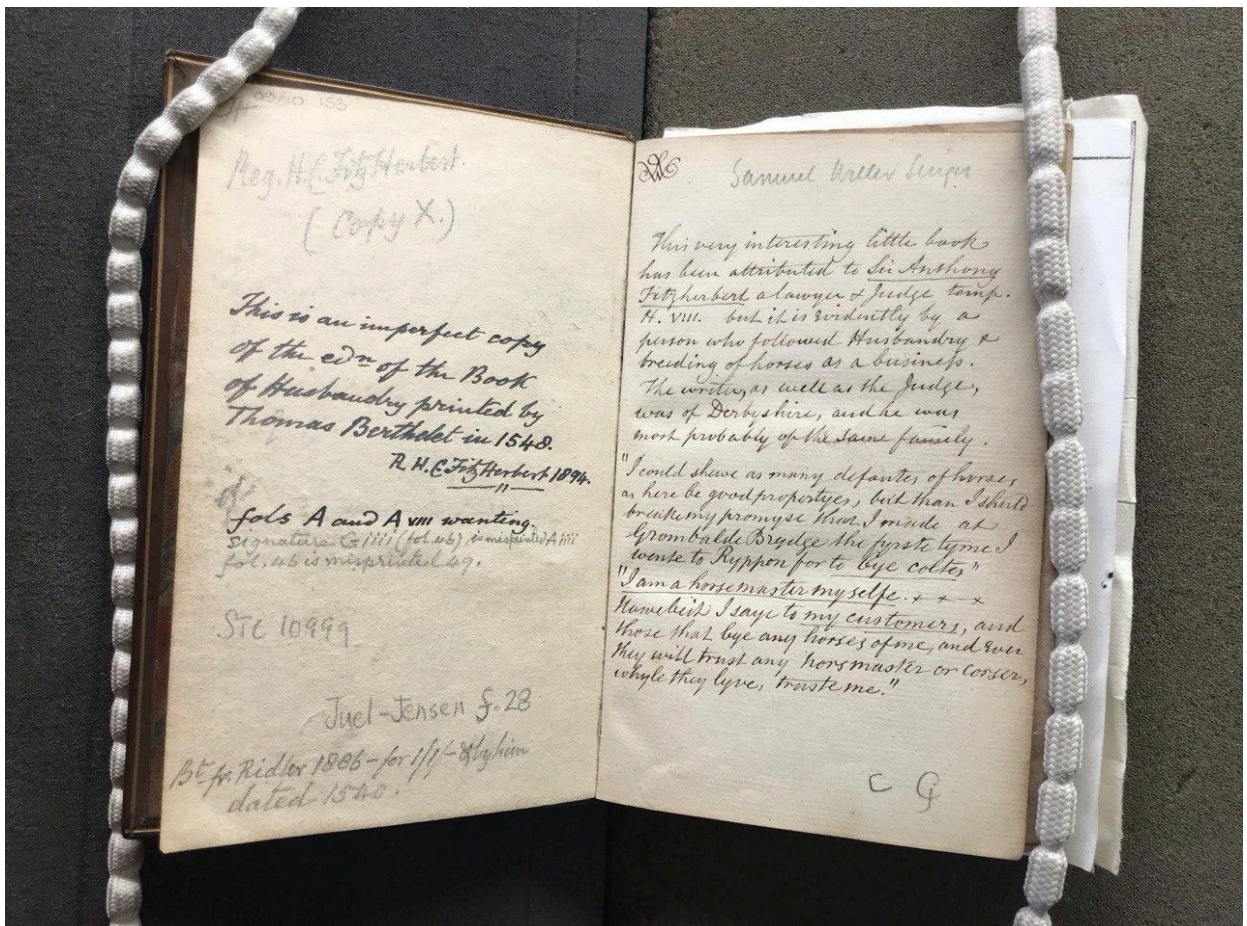 153
Reg. H. C. FitzHerbert.
(Copy X.)
This is an imperfect copy
of the edn of the Book
of Husbandry printed by
Thomas Berthelet in 1548.
R. H. C. FitzHerbert 1894.
fols A and A VIII wanting.
signature G iiii (fol. 46) is misprinted A iiii
fol. 46 is misprinted 49.
STC 10999
Juel-Jensen f. 28
Bt. fr. Ridler 1886 - for 1/1/- & by him
dated 1540.
Samuel Weller Singer
This very interesting little book
has been attributed to Sir Anthony
Fitzherbert a lawyer & Judge temp.
H. VIII. but it is evidently by a
person who followed Husbandry &
breeding of horses as a business.
The writer, as well as the Judge,
was of Derbyshire, and he was
most probably of the same family.
"I could shewe as many defautes of horses
as here be good propertyes, but than I shuld
breake my promyse that I made at
Grombalde Brydge the fyrste tyme I
wente to Ryppon for to bye coltes"
"I am a horsemaster my selfe. x x x
Howebeit I saye to my customers, and
those that bye any horses of me, and ever
they will trust any horsmaster or corser,
whyle they lyve, truste me."
C G